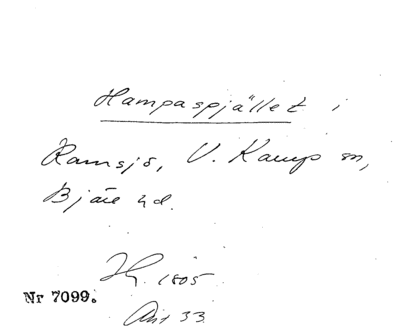 Hampaspjället i
Ramsjö, V. Karup sn,
Bjäre hd.
Hy. 1805
Nr 7099.
Akt 33